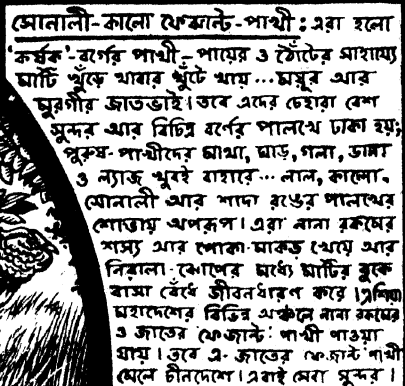 সোনালী-কালো ফেজান্ট-পাখী : এরা হলো
'কর্ষক'-বর্গের পাখী – পায়ের ও ঠোঁটের সাহায্যে
মাটি খুঁড়ে খাবার খুঁটে খায়... ময়ূর আর
মুরগীর জাতভাই। তবে এদের চেহারা বেশ
সুন্দর আর বিচিত্র বর্ণের পালখে ঢাকা হয়;
পুরুষ-পাখীদের মাথা, ঘাড়, গলা, ডানা
ও ল্যাজ খুবই বাহারে... লাল, কালো,
সোনালী আর শাদা রঙের পালখের
শোভায় অপরূপ। এরা নানা রকমের
শস্য আর পোকা-মাকড় খেয়ে আর
নিরালা-ঝোপের মধ্যে মাটির বুকে
বাসা বেঁধে জীবনধারণ করে। এশিয়া
মহাদেশের বিভিন্ন অঞ্চলে নানা রকমের
ও জাতের ফেজান্ট-পাখী পাওয়া
যায়। তবে এ-জাতের ফেজান্ট পাখী
মেলে চীনদেশে। এরাই সেরা সুন্দর।